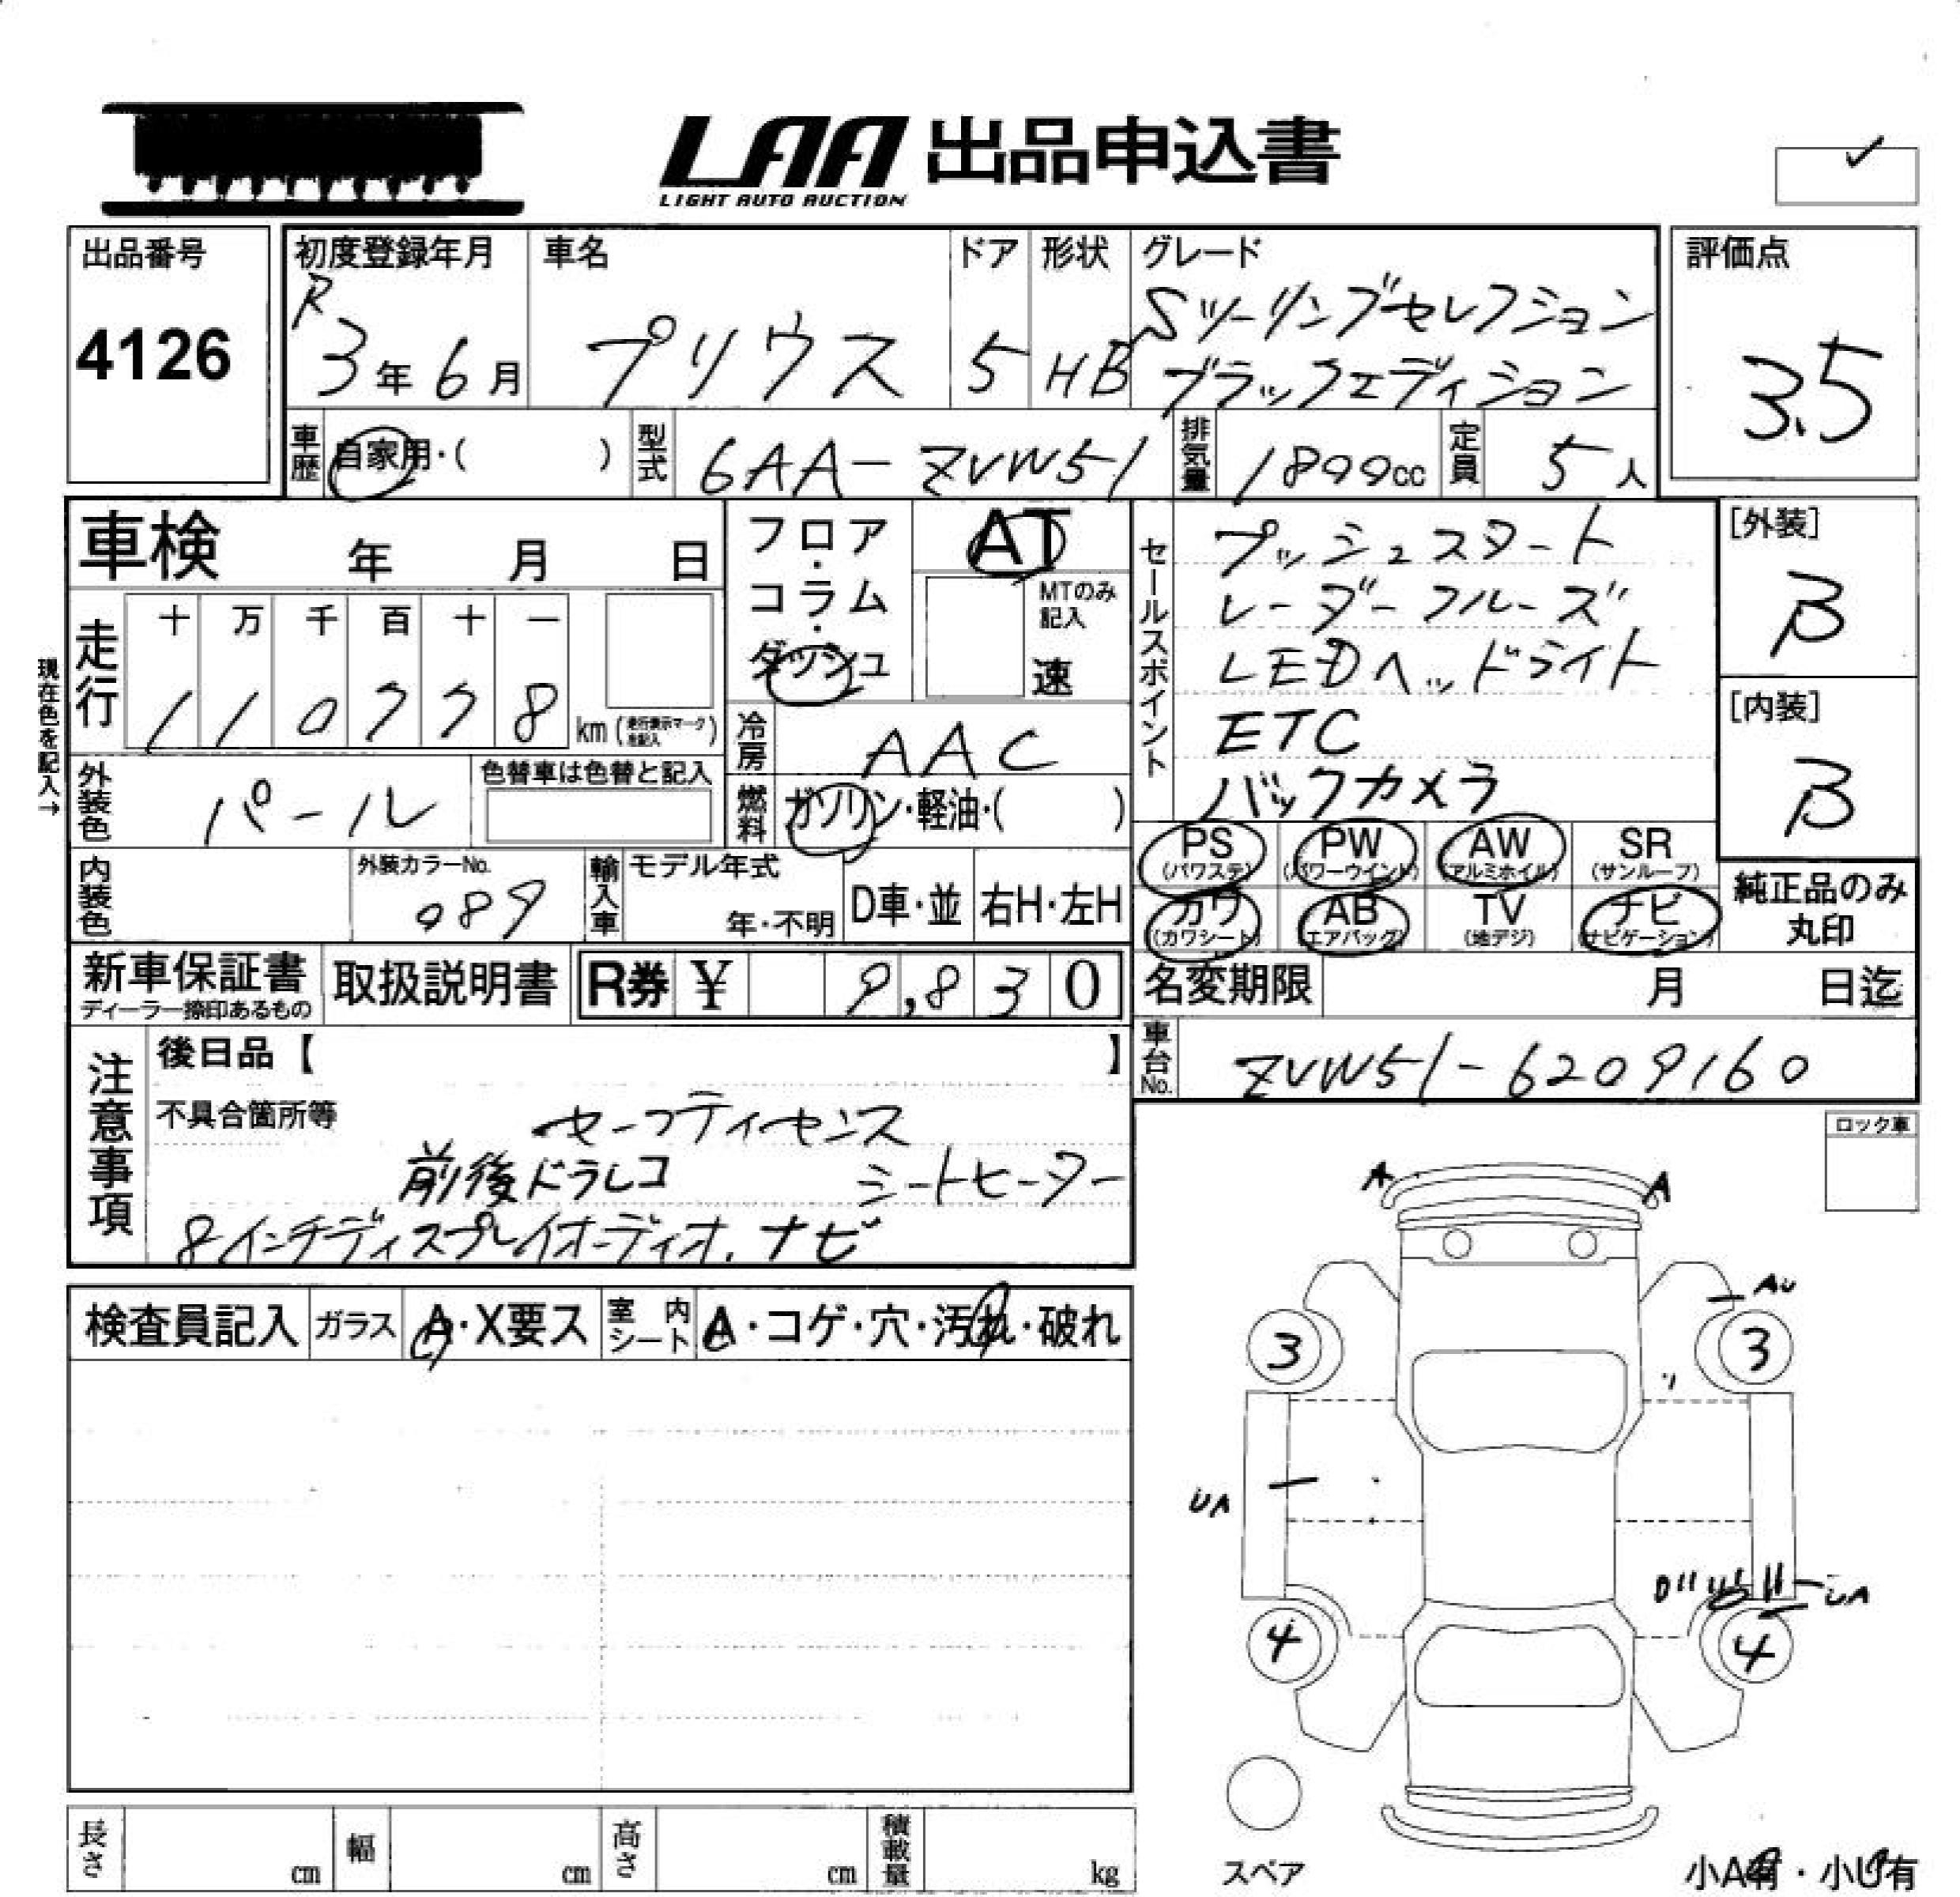 LAA 出品申込書
LIGHT AUTO AUCTION
✓
出品番号
4126
初度登録年月
R
3年6月
車名
プリウス
ドア
5
形状
HB
グレード
Sツーリングセレクション
ブラックエディション
評価点
3.5
車歴
自家用・( )
型式
6AA-ZVW51
排気量
1800cc
定員
5人
車検 年 月 日
フロア・コラム・ダッシュ
AT
MTのみ記入
速
セールスポイント
プッシュスタート
レーダークルーズ
LEDヘッドライト
ETC
バックカメラ
[外装]
B
[内装]
B
現在色を記入→
走行
十 万 千 百 十 一
1 1 0 7 7 8 km (走行表示マーク左記入)
冷房
AAC
外装色
パール
色替車は色替と記入
燃料
ガソリン・軽油・( )
PS (パワステ)
PW (パワーウインド)
AW (アルミホイル)
SR (サンルーフ)
カワ (カワシート)
AB (エアバッグ)
TV (地デジ)
ナビ (ナビゲーション)
純正品のみ
丸印
内装色
外装カラーNo.
089
輸入車
モデル年式
年・不明
D車・並
右H・左H
新車保証書
ディーラー捺印あるもの
取扱説明書
R券 ¥ 9,830
名変期限 月 日迄
車台No.
ZVW51-6209160
注意事項
後日品【 】
不具合箇所等
セーフティセンス
前後ドラレコ シートヒーター
8インチディスプレイオーディオ.ナビ
ロック車
検査員記入
ガラス
A・X要ス
室内シート
A・コゲ・穴・汚れ・破れ
A
A
AU
3
3
UA
UA
4
4
スペア
小A有・小U有
長さ cm
幅 cm
高さ cm
積載量 kg